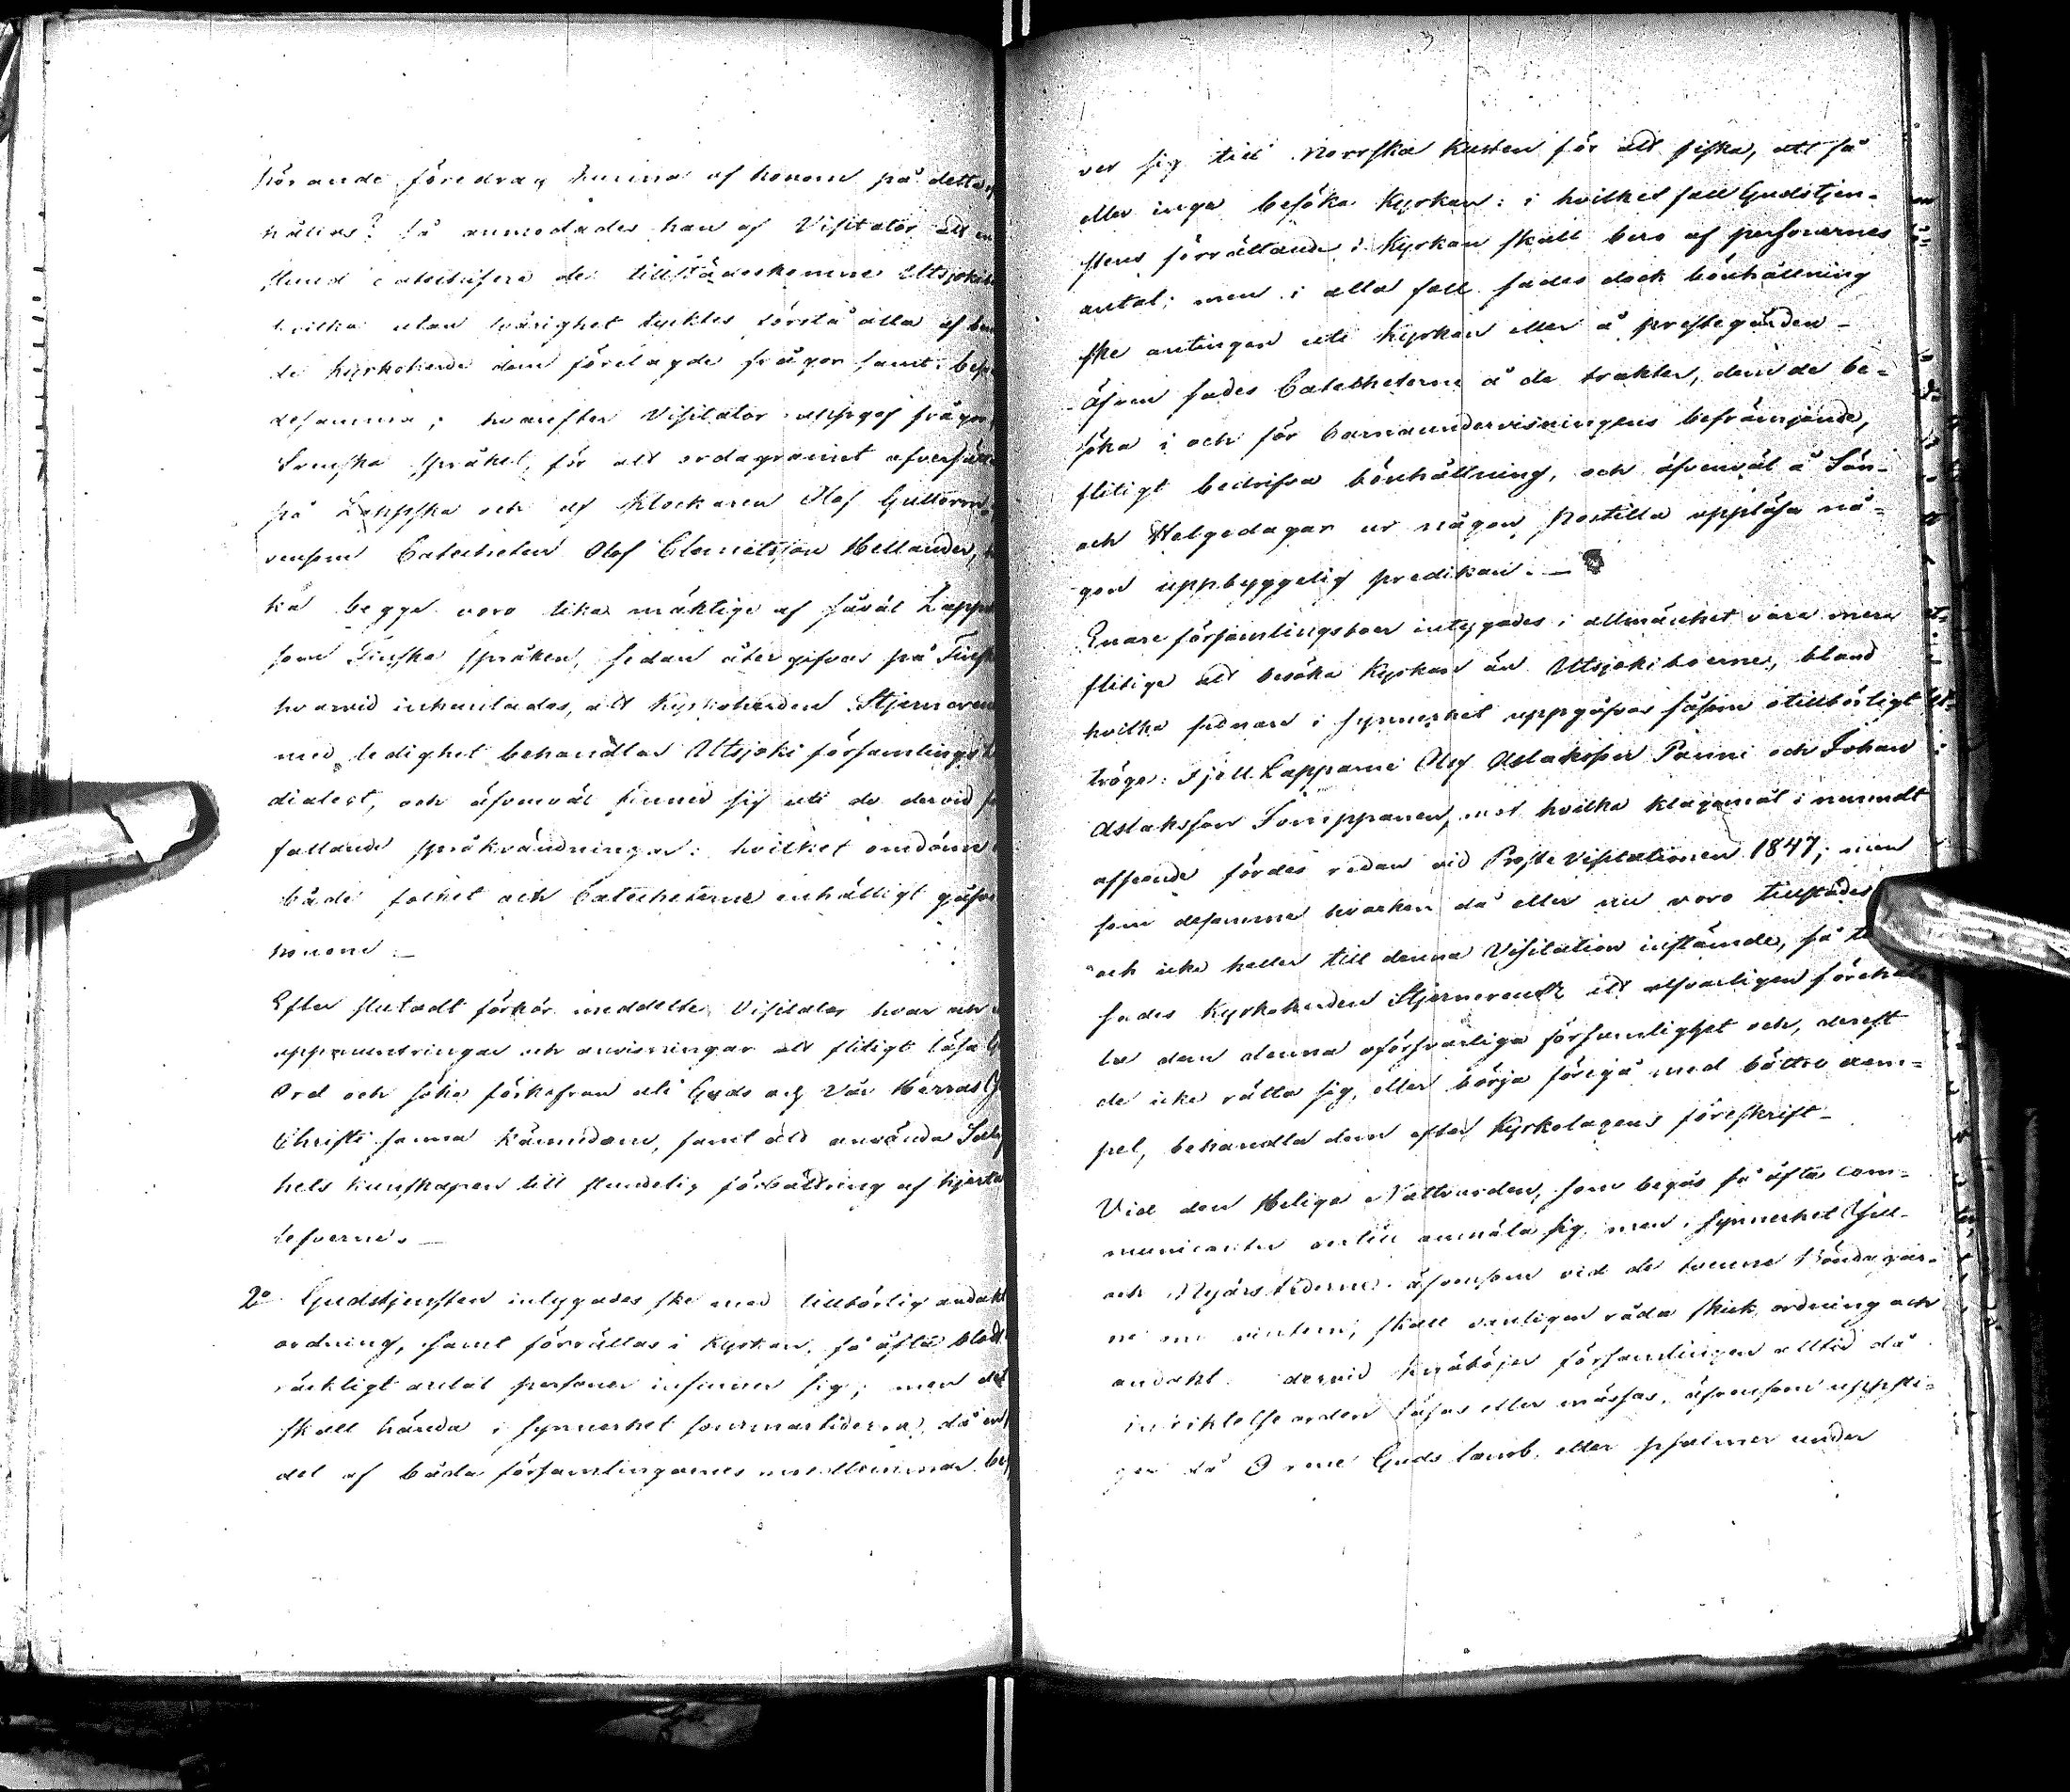 hörande föredrag kunna af honom på detta
hållas? så anmodades han af Visitator att en
stund catechisera de tillstädeskomne Utsjoki
hvilka utan svårighet tycktes förstå alla af
de Kyrkoherde dem förelagde frågor samt besv
desamma; hvarefter Visitator uppgaf frågor
Svenska Språket, för att ordagrannt öfversätta
på Lappska och af Klockaren Olof Guttorm
vensom Catecheten Olof Clemetsson Hellander,
ka begge voro lika mäktige af såväl Lapp
som Finska språken, sedan återgifvas på Finsk
hvarvid inhemtades, att Kyrkoherden Stjerncreu
med ledighet behandlar Utsjoki församlings
dialect, och äfvenväl finner sig uti de dervid
fallande språkvändningar: hvilket omdöme
både folket och Catecheterne enhälligt gåfvo
honom. —
Efter slutadt förhör meddelte Visitator hvar och
uppmuntringar och anvisningar att flitigt läsa G
Ord och söka förkofran uti Guds och Vår Herras
Christi sanna kännedom, samt att använda Salig
hets kunskapen till stundelig förbättring af hjerta
lefverne. —
2o Gudstjensten intygades ske med tillbörlig andakt
ordning, samt förrättas i Kyrkan, så ofta blott
räckligt antal personer infinner sig; men det
skall hända i synnerhet sommartiderna, då en
del af båda församlingarnes medlemmar be
ver sig till Norrska kusten för att fiska, att få
eller inga besöka Kyrkan: i hvilket fall Gudstjen-
stens förrättande i Kyrkan skall bero af personernes
antal; men i alla fall sades dock bönhållning
ske antingen uti Kyrkan eller å prestegården —
Äfven sades Catecheterne å de trakter, dem de be-
söka i och för barnaundervisningens befrämjande,
flitigt bedrifva bönhållning, och äfvenväl å Sön-
och Helgedagar ur någon Postilla uppläsa nå-
gon uppbyggelig predikan. —
Enare församlingsboer intygades i allmänhet vara mera
flitige att besöka Kyrkan än Utsjokiboerne, bland
hvilka sednare i synnerhet uppgåfvos såsom otillbörligt
tröge: Fjell Lapparne Olof Aslaksson Panni och Johan
Aslaksson Somppanen, mot hvilka klagomål i nämndt
afseende fördes redan vid Prosta Visitationen 1847; men
som desamme hvarken då eller nu voro tillstädes
och icke heller till denna Visitation instämde, så
sades Kyrkoherden Stjerncreutz att alfvarligen förehål
la dem denna oförsvarliga försumlighet och, derest
de icke rätta sig, eller börja föregå med bättre exem-
pel, behandla dem efter Kyrkolagens föreskrift —
Vid den Heliga Nattvarden, som begås så ofta com-
municanter dertill anmäla sig, men i synnerhet Jul-
och Nyårs tiderne, äfvensom vid de tvenne Böndagar-
ne om vintern, skall vanligen råda skick, ordning och
andakt. dervid knäböjer församlingen alltid då
instiktelse orden läsas eller mässas, äfvensom uppsti-
ger då O rene Guds lamb, eller psalmer under